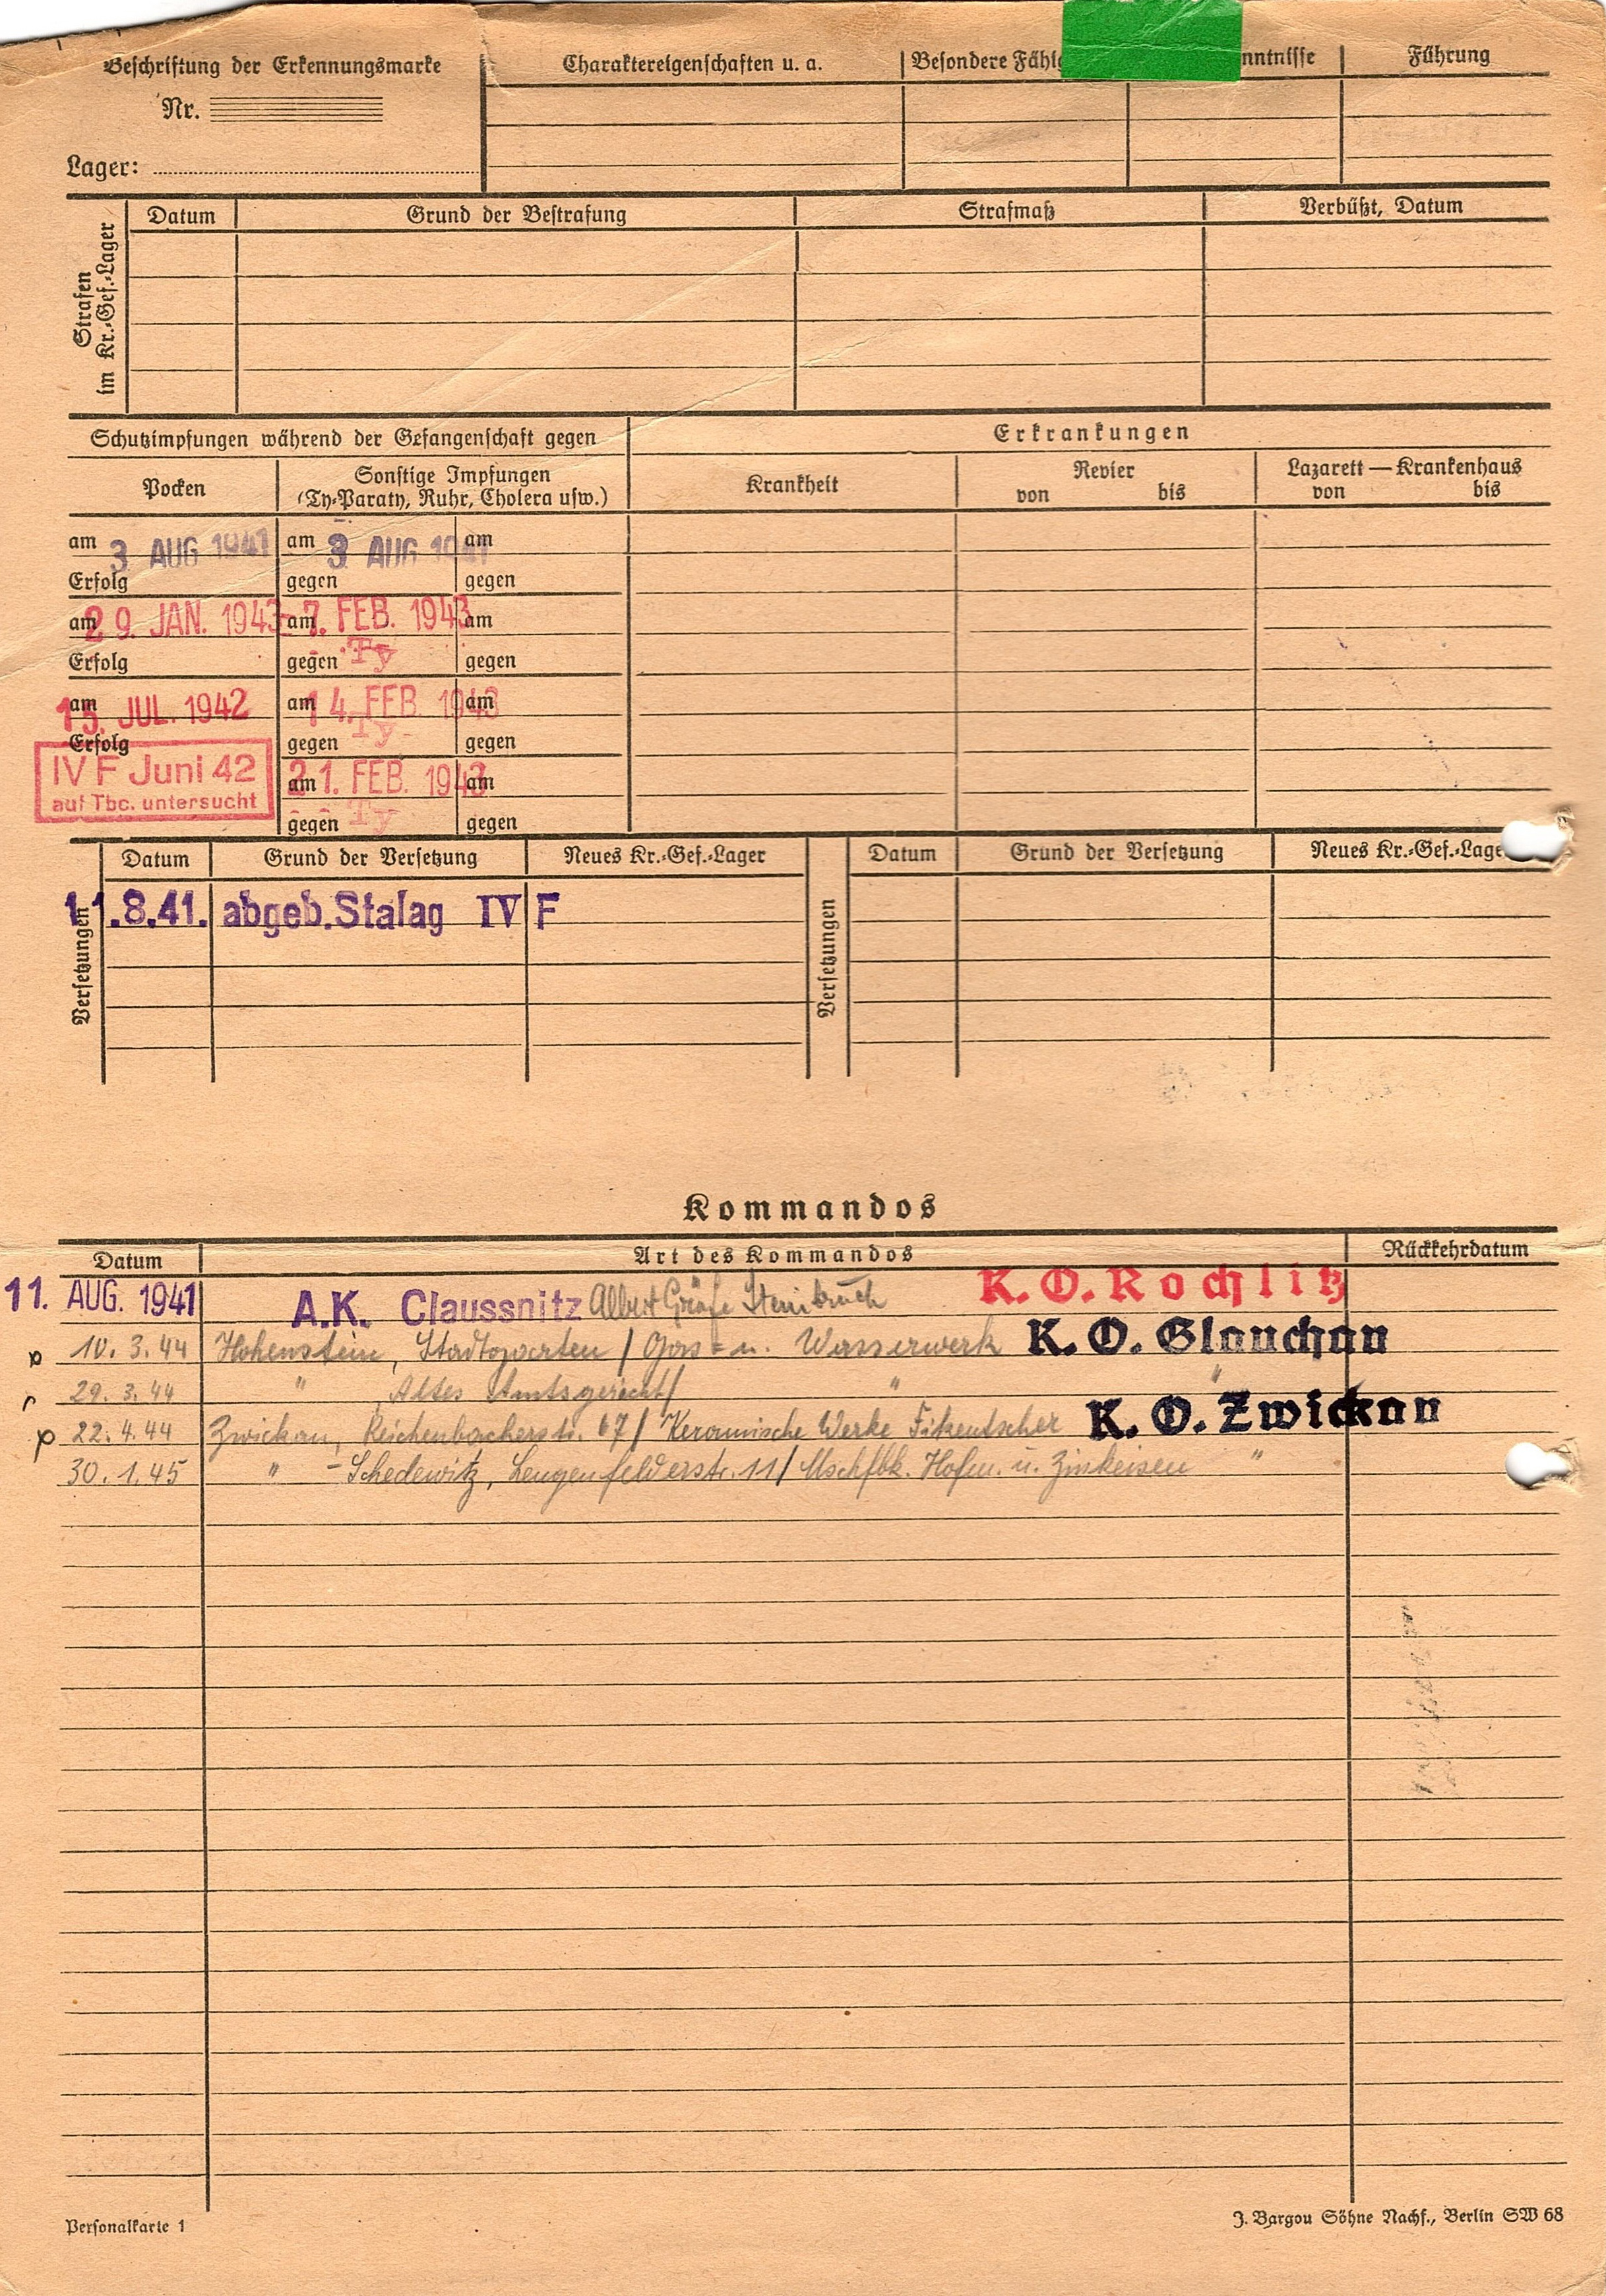 Beschriftung der Erkennungsmarke
Nr.
Lager:
Charaktereigenschaften u. a.
Besondere Fähig
nntnisse
Führung
Strafen im Kr.-Gef.-Lager
Datum
Grund der Bestrafung
Strafmaß
Verbüßt, Datum
Schutzimpfungen während der Gefangenschaft gegen
Erkrankungen
Pocken
Sonstige Impfungen
(Ty-Paraty, Ruhr, Cholera usw.)
Krankheit
Revier
von bis
Lazarett — Krankenhaus
von bis
am 3. AUG 1941 am 3 AUG 1941 am
Erfolg gegen gegen
am 29. JAN. 1943 am -7. FEB. 1943 am
Erfolg gegen Ty gegen
am 15. JUL. 1942 am 14. FEB. 1943 am
Erfolg gegen Ty gegen
IV F Juni 42
auf Tbc. untersucht
am 21. FEB. 1943 am
gegen Ty gegen
Versetzungen
Datum
Grund der Versetzung
Neues Kr.-Gef.-Lager
Versetzungen
Datum
Grund der Versetzung
Neues Kr.-Gef.-Lage
11.8.41. abgeb. Stalag IV F
Kommandos
Datum
Art des Kommandos
Rückkehrdatum
11. AUG. 1941 A.K. Claussnitz Albert Gräfe Steinbruch K. O. Rochlitz
p 10. 3. 44 Hohenstein, Stadtgarten / Gas- u. Wasserwerk K. O. Glauchau
r 29. 3. 44 " , Altes Amtsgericht / " "
p 22. 4. 44 Zwickau, Reichenbacherstr. 67 / Keramische Werke Fikentscher K. O. Zwickau
30. 1. 45 " - Schedewitz, Lengenfelderstr. 11 / Mschfbk. Hofm. u. Zinkeisen "
Personalkarte 1
J. Bargou Söhne Nachf., Berlin SW 68